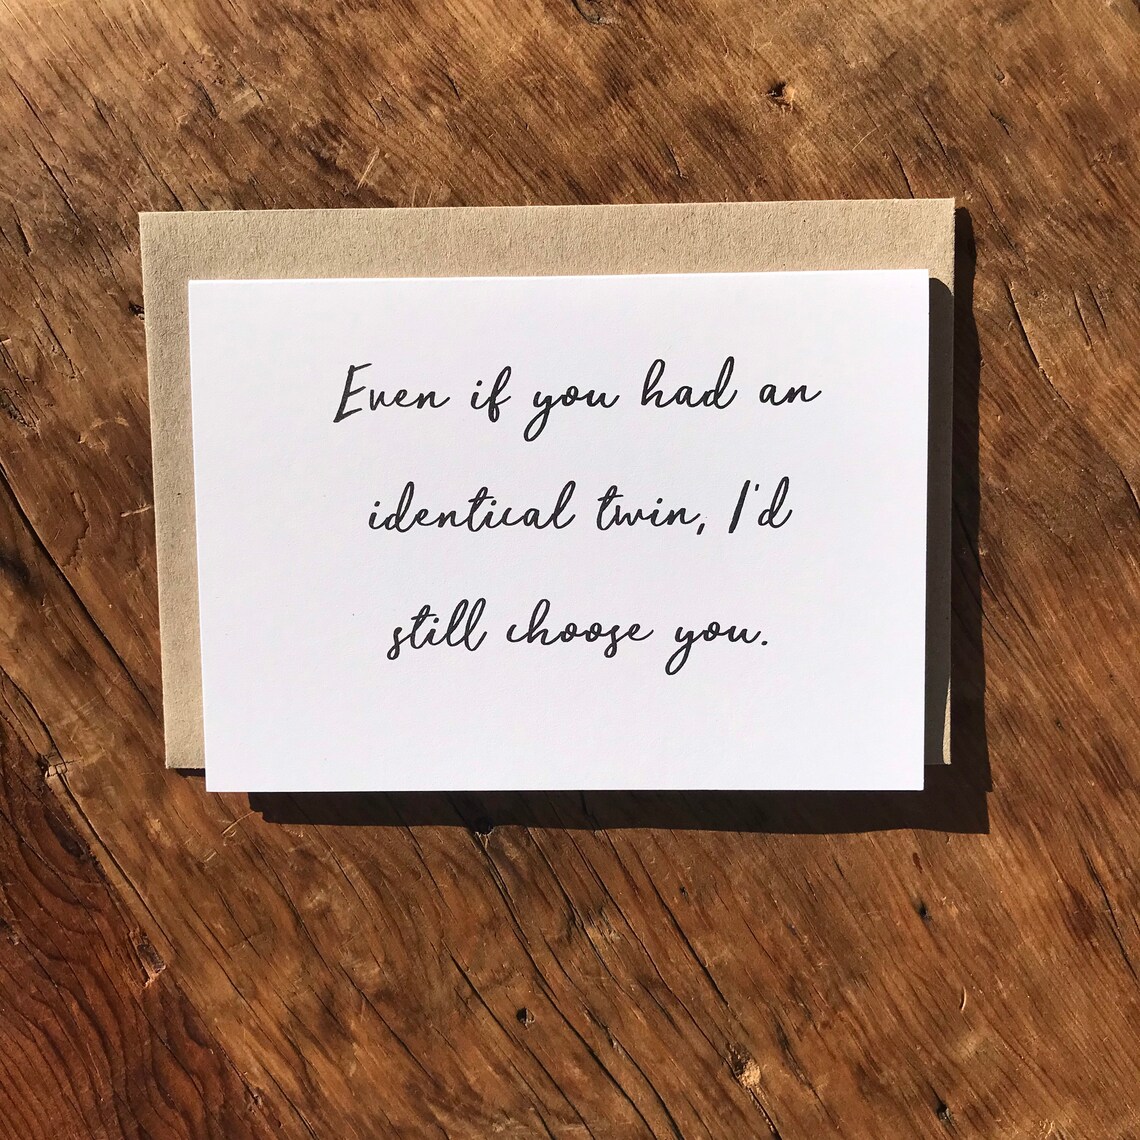 Even if you had an
identical twin, I'd
still choose you.